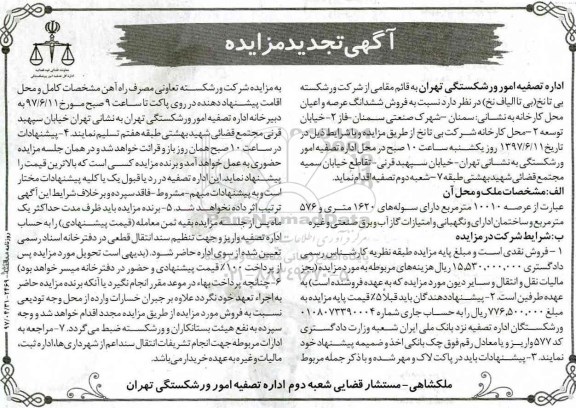 آگهی تجدید مزایده
اداره تصفیه امور ورشکستگی تهران به قائم مقامی از شرکت ورشکسته
بی تا نخ (بی تا الیاف نخ) در نظر دارد نسبت به فروش ششدانگ عرصه و اعیان
محل کارخانه به نشانی: سمنان - شهرک صنعتی سمنان - فاز ۲ - خیابان
توسعه ۲ - محل کارخانه شرکت بی تا نخ از طریق مزایده و با شرایط ذیل در
تاریخ ۱۳۹۷/۶/۱۱ روز یکشنبه ساعت ۱۰ صبح در محل اداره تصفیه امور
ورشکستگی به نشانی تهران - خیابان سپهبد قرنی - تقاطع خیابان سمیه
مجتمع قضائی شهید بهشتی طبقه ۷ - شعبه دوم تصفیه اقدام نماید.
الف: مشخصات ملک و محل آن
عبارت از عرصه ۱۰۰۱۰ مترمربع دارای سوله‌های ۱۶۲۰ متری و ۵۷۶
مترمربع و ساختمان اداری و نگهبانی و امتیازات گاز آب و برق صنعتی و غیره
ب: شرایط شرکت در مزایده
۱ - فروش نقدی است و مبلغ پایه مزایده طبق نظریه کارشناس رسمی
دادگستری ۱۵,۵۳۰,۰۰۰,۰۰۰ ریال هزینه‌های مربوطه به مورد مزایده (بجز
مالیات نقل و انتقال و سایر دیون مورد مزایده که به عهده فروشنده است) به
عهده طرفین است. ۲ - پیشنهاددهندگان باید قبلا ۵٪ قیمت پایه مزایده به
مبلغ ۷۷۶,۵۰۰,۰۰۰ ریال را به حساب جاری شماره ۰۱۰۸۰۷۳۳۹۰۰۰۴
ورشکستگان اداره تصفیه نزد بانک ملی ایران شعبه وزارت دادگستری
کد ۵۷۷ واریز و یا معادل رقم فوق چک بانکی اخذ و ضمیمه پیشنهاد خود
نمایند. ۳ - پیشنهادات باید در پاکت لاک و مهر شده و با ذکر جمله مربوط
به مزایده شرکت ورشکسته تعاونی مصرف راه آهن مشخصات کامل و محل
اقامت پیشنهاددهنده در روی پاکت تا ساعت ۹ صبح مورخ ۹۷/۶/۱۱ به
دبیرخانه اداره تصفیه امور ورشکستگی تهران به نشانی تهران خیابان سپهبد
قرنی مجتمع قضائی شهید بهشتی طبقه هفتم تسلیم نمایند. ۴ - پیشنهادات
در ساعت ۱۰ صبح همان روز باز و قرائت خواهد شد و در همان جلسه مزایده
حضوری به عمل خواهد آمد و برنده مزایده کسی است که بالاترین قیمت را
پیشنهاد نماید این اداره تصفیه در رد یا قبول یک یا کلیه پیشنهادات مختار
است و به پیشنهادات مبهم - مشروط - فاقد سپرده و بر خلاف شرایط این آگهی
ترتیب اثر داده نخواهد شد. ۵ - برنده مزایده باید ظرف مدت حداکثر یک
ماه پس از جلسه مزایده بقیه ثمن معامله (قیمت پیشنهادی) را به حساب
اداره تصفیه واریز و جهت تنظیم سند انتقال قطعی در دفترخانه اسناد رسمی
تعیین شده از سوی اداره حاضر شود. (بدیهی است تحویل مورد مزایده پس
از پرداخت ۱۰۰٪ قیمت پیشنهادی و حضور در دفترخانه میسر خواهد بود)
۶ - چنانچه پرداخت بهاء در موعد مقرر انجام نگیرد یا آنکه برنده مزایده حاضر
به اجراء تعهد خود نگردد علاوه بر جبران خسارات وارده از محل وجه تودیعی
نسبت به فروش مورد مزایده از طریق مزایده مجدد اقدام خواهد شد و وجه
سپرده به نفع هیئت بستانکاران و ورشکسته ضبط می گردد. ۷ - مراجعه به
ادارات مربوطه جهت انجام تشریفات انتقال سند اعم از شهرداری ها، اداره ثبت،
مالیات و غیره به عهده خریدار می باشد.
ملکشاهی - مستشار قضایی شعبه دوم اداره تصفیه امور ورشکستگی تهران